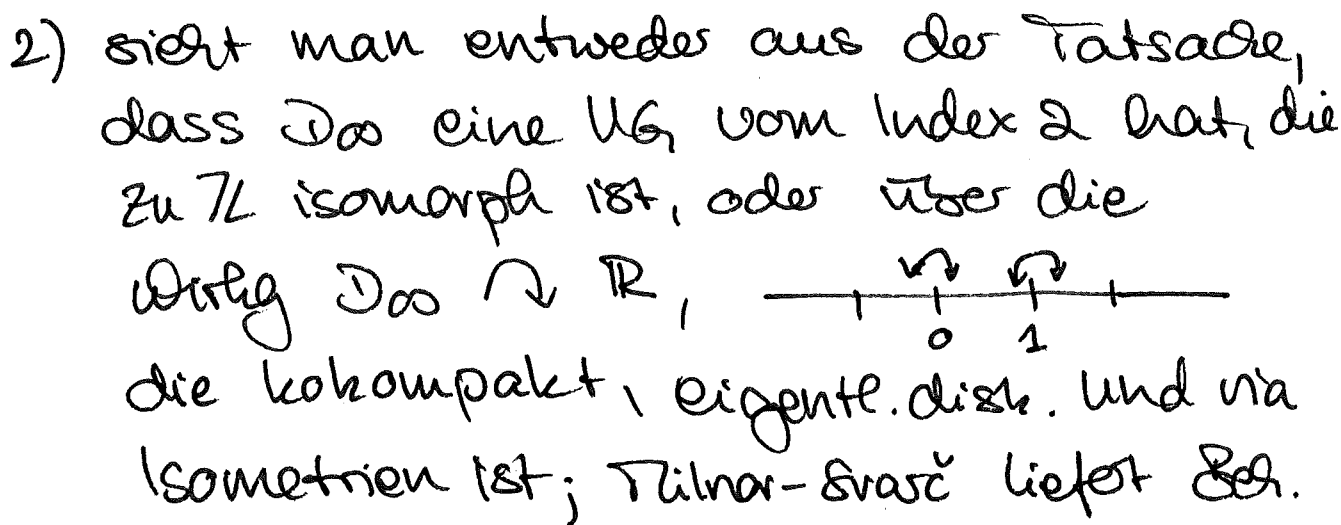 2) sieht man entweder aus der Tatsache,
dass D∞ eine UG vom Index 2 hat, die
zu ℤ isomorph ist, oder über die
Wirkg D∞ ↷ ℝ,
0 1
die kokompakt, eigentl. disk. und via
Isometrien ist; Milnor-Švarč liefert Beh.